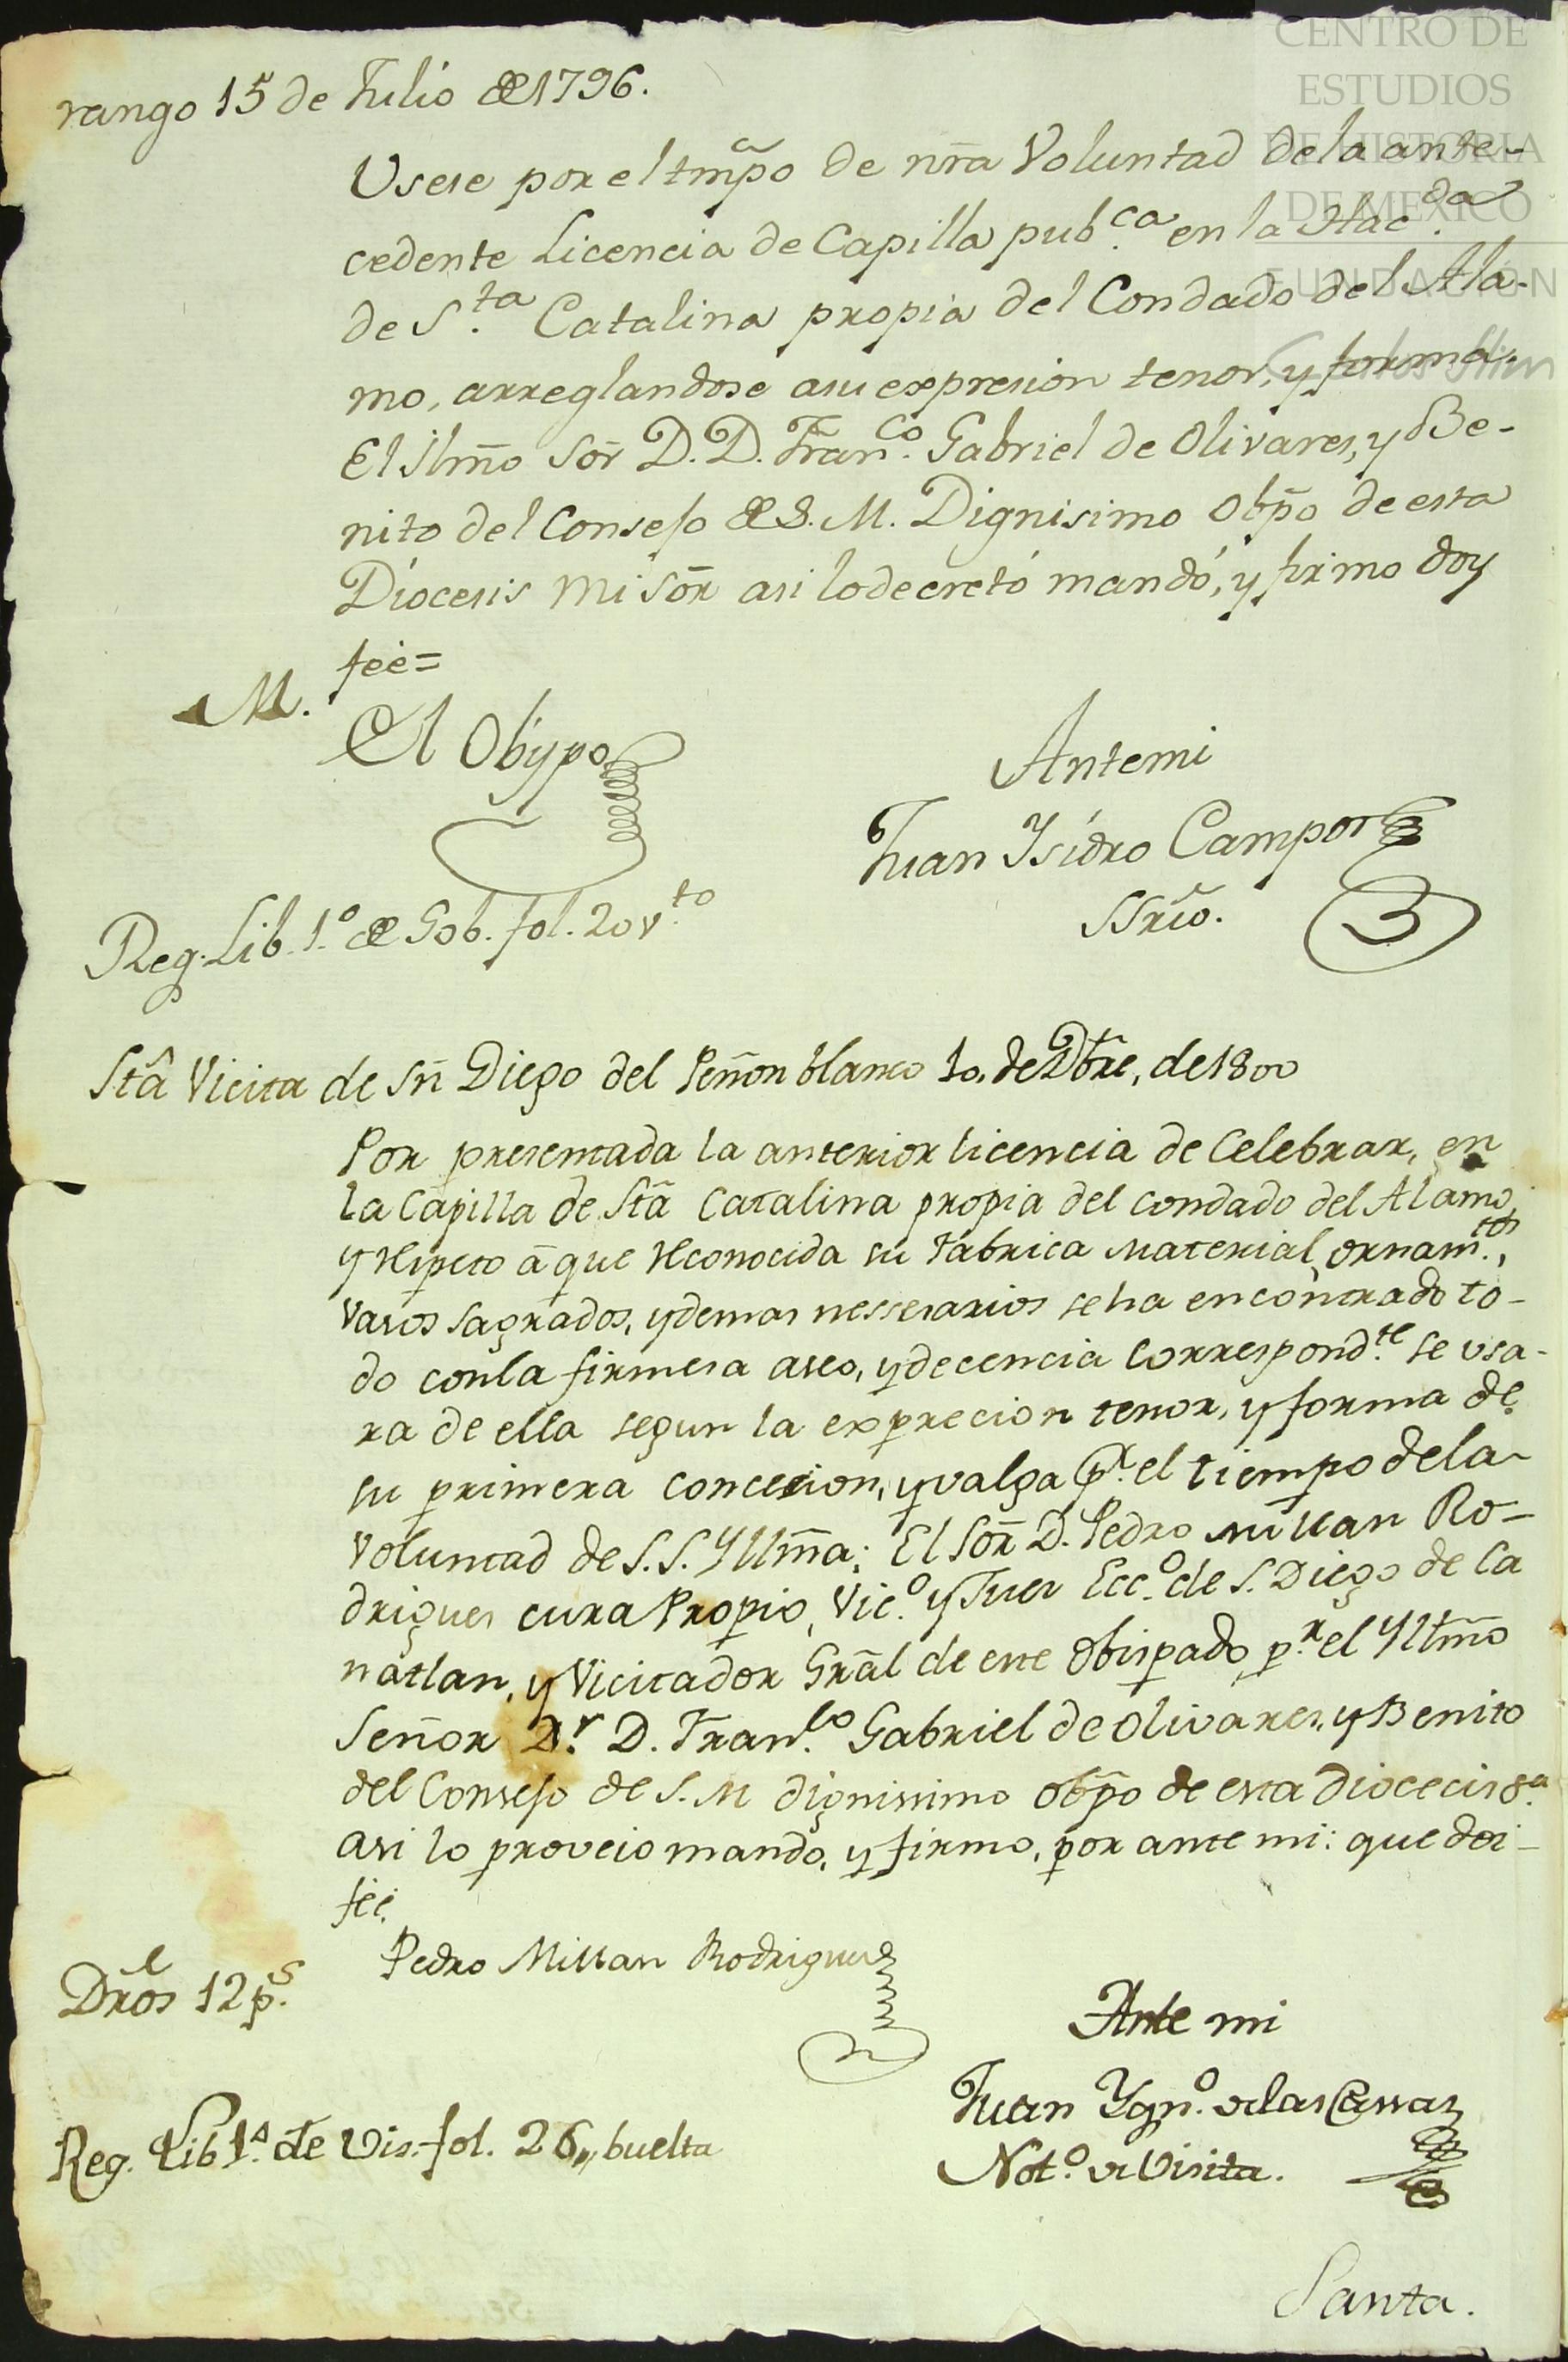 CENTRO DE
ESTUDIOS
DE HISTORIA
DE MEXICO
FUNDACIÓN
Carlos Slim
rango 15 de Julio de 1796.
Usese por el tmpo de nra Voluntad de la ante-
cedente Licencia de Capilla pub.ca en la Hac.da
de S.ta Catalina propia del Condado del Ala-
mo, arreglandose a su expresion tenor, y forma.
El Ilmo Sor D. D. Fran.co Gabriel de Olivares, y Be-
nito del Consejo de S. M. Dignisimo Obpo de esta
Diocesis mi Sor asi lo decretó mandó, y firmo doy
feé=
M.
El Obispo
Ante mi
Juan Ysidro Campos
SSrio.
Reg. Lib. 1.o de Gob. fol. 20 v.to
Sta Vicita de Sn Diego del Peñon blanco 10. de Dbre, de 1800
Por presentada la anterior licencia de Celebrar, en
la Capilla de Sta Catalina propia del condado del Alamo,
y respcto a que reconocida su Fabrica material, ornam.tos,
vasos sagrados, y demas nessesarios se ha encontrado to-
do con la firmesa aseo, y decencia correspond.te se usa-
ra de ella segun la exprecion tenor, y forma de
su primera concesion, y valga p.r el tiempo de la
voluntad de S. S. Yllma; El Sor D. Pedro Millan Ro-
drigues cura Propio, Vic.o y Jues Ecc.o de S. Diego de Ca
natlan, y Vicitador Gral de este Obispado, p.r el Yltmo
Señor D.r D. Fran.co Gabriel de Olivares, y Benito
del Consejo de S. M dignissimo obpo de esta Diocecis &.a
asi lo proveio mando, y firmo, por ante mi: que doi
feé.
Pedro Millan Rodrigues
Dros 12 p.s
Ante mi
Juan Ygn.o de las Cassas
Not.o de Visita.
Reg. Lib 1.o de Vis. fol. 26,, buelta
Santa.